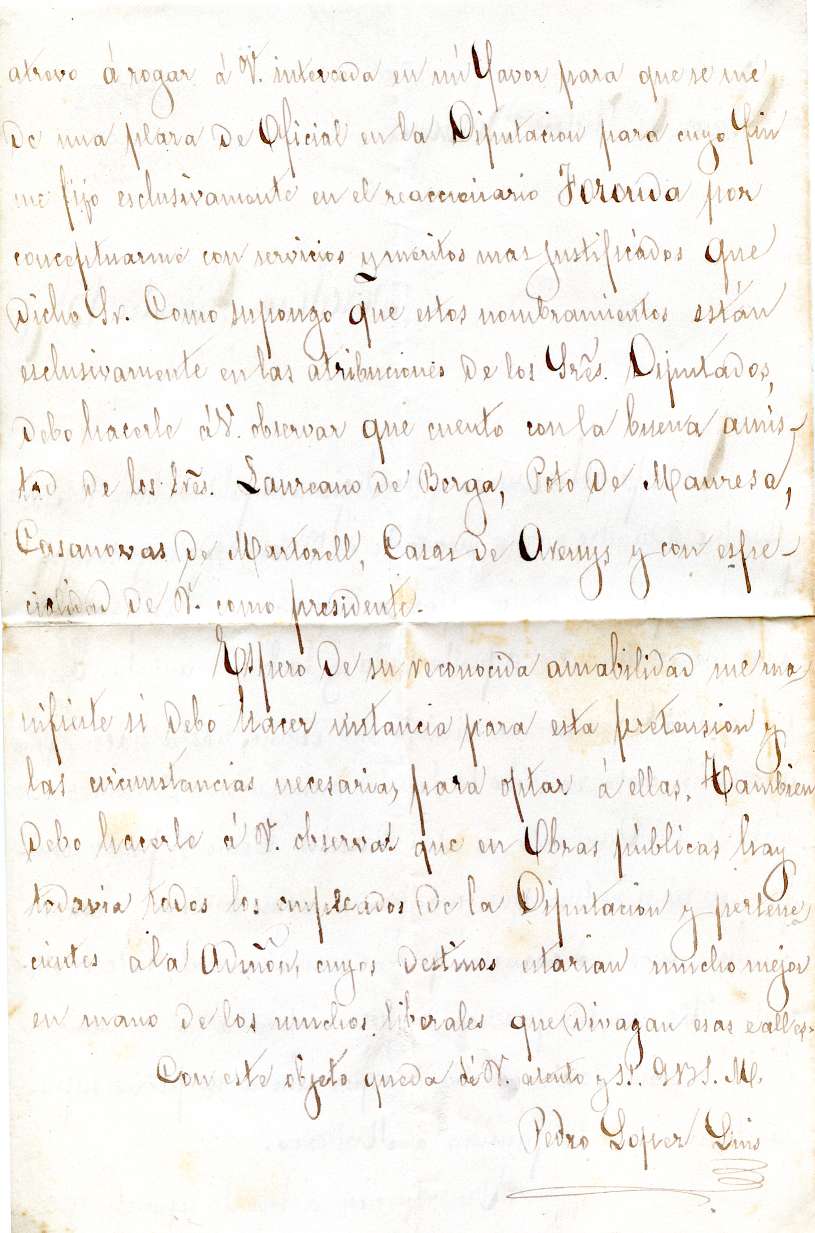 atrevo á rogar á V. interceda en mi favor para que se me
de una plaza de Oficial en la Diputacion para cuyo fin
me fijo esclusivamente en el reaccionario Foronda por
conceptuarme con servicios y meritos mas justificados que
dicho Sr. Como supongo que estos nombramientos están
esclusivamente en las atribuciones de los Sres. Diputados,
debo hacerle á V. observar que cuento con la buena amis-
tad de los Sres. Laureano de Berga, Poto de Manresa,
Casanovas de Martorell, Casas de Arenys y con espe-
cialidad de V. como presidente.
Espero de su reconocida amabilidad me ma-
nifieste si debo hacer instancia para esta pretension y
las circunstancias necesarias para optar á ellas. Tambien
debo hacerle á V. observar que en Obras públicas hay
todavia todos los empleados de la Diputacion y pertene-
cientes a la Admón, cuyos destinos estarian mucho mejor
en mano de los muchos liberales que divagan esas calles.
Con este objeto queda de V. atento y S.S. Q.B.S.M.
Pedro Lopez Luis